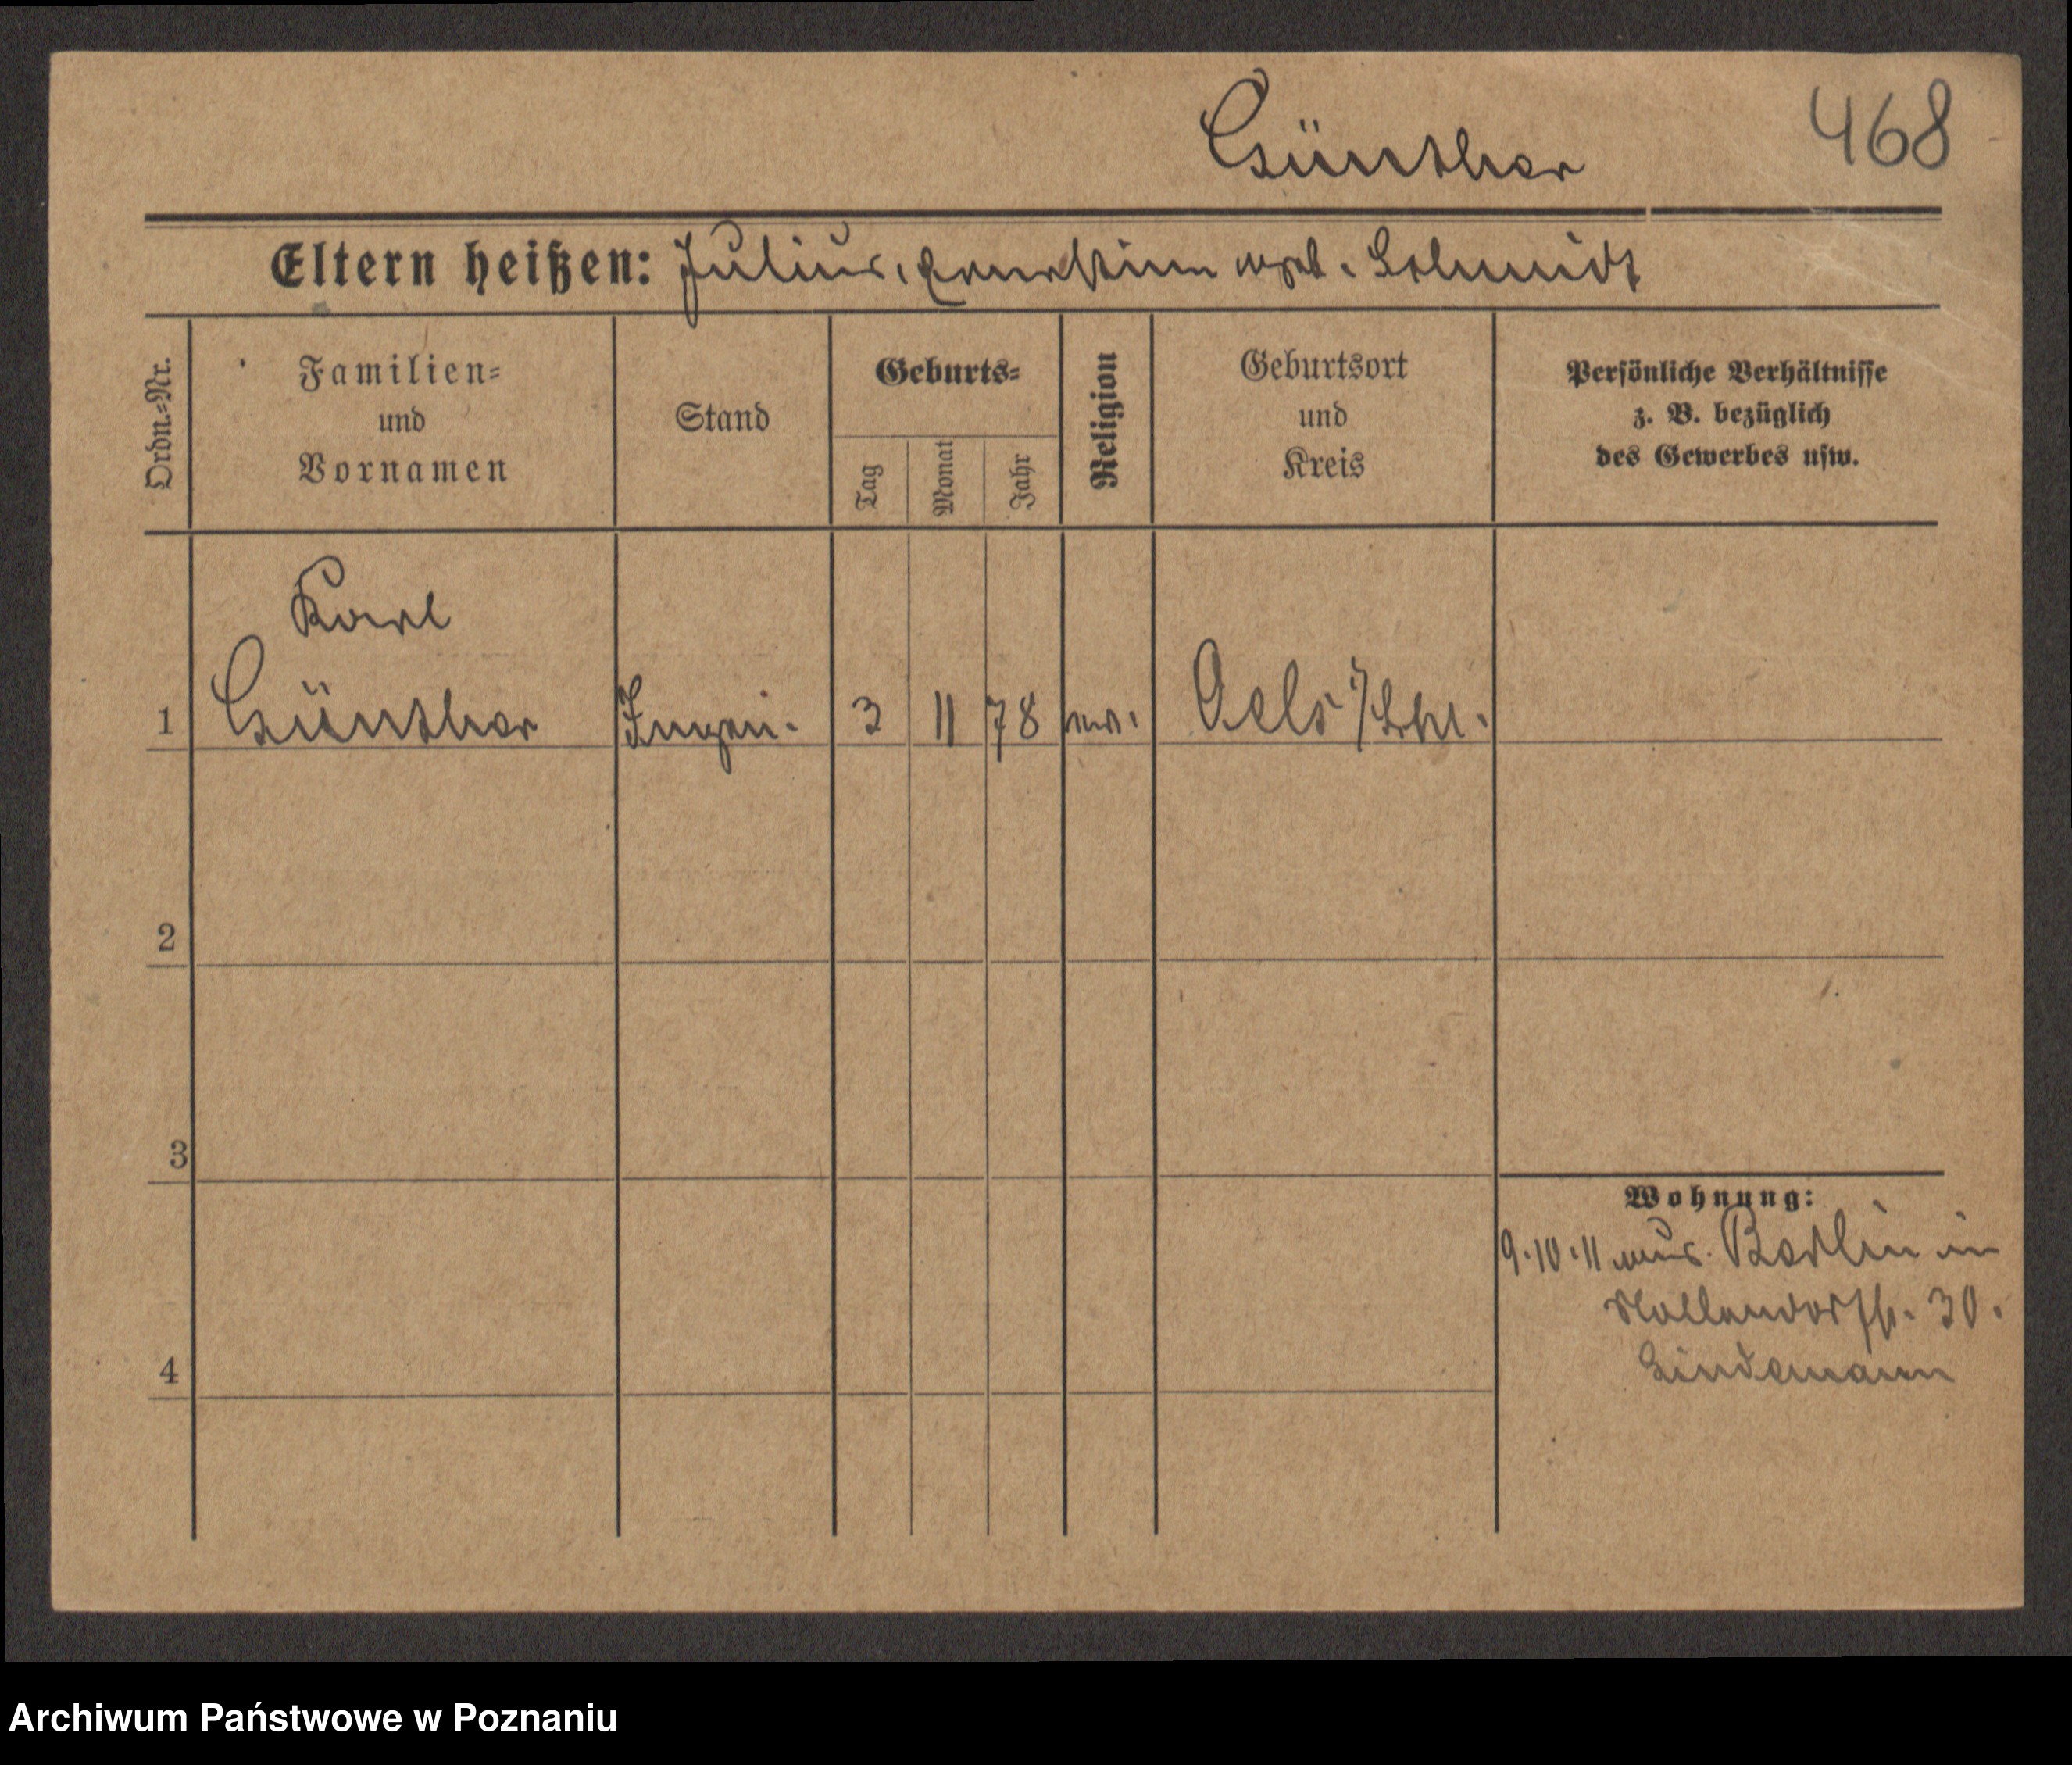 Günther 468
Eltern heißen: Julius, Ernestine geb. Schmidt
Ordn.=Nr.
Familien=
und
Vornamen
Stand
Geburts=
Tag
Monat
Jahr
Religion
Geburtsort
und
Kreis
Persönliche Verhältnisse
z. B. bezüglich
des Gewerbes usw.
Karl
1 Günther Ingen. 3 11 78 ev. Oels i/Schl.
2
3
Wohnung:
9.10.11 aus Berlin in
Nollendorfstr. 30.
4 Lindemann
Archiwum Państwowe w Poznaniu